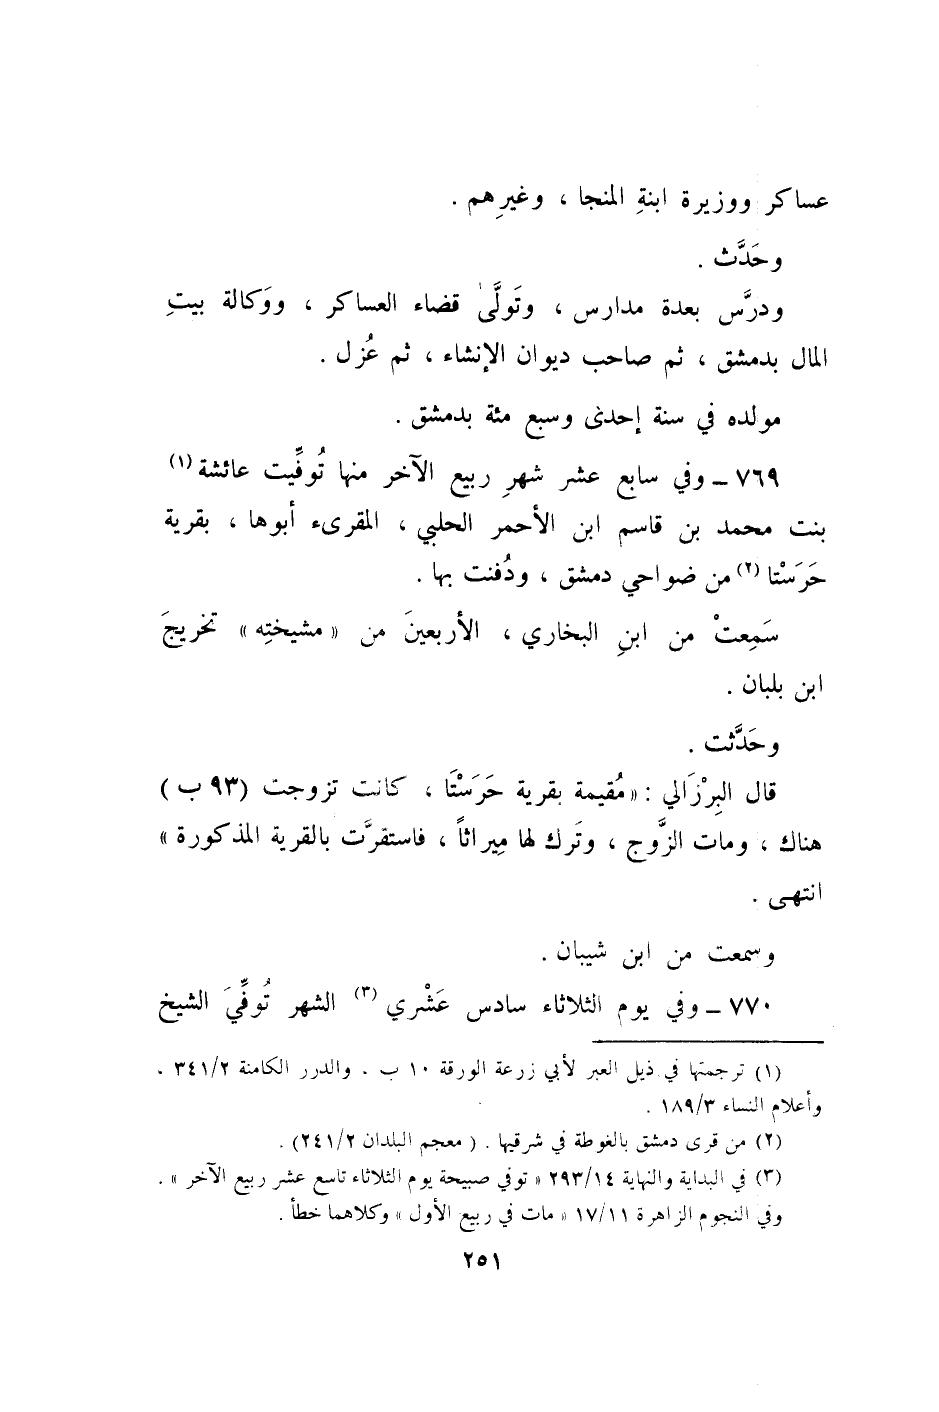 عساكر ووزيرة ابنةِ المنجا ، وغيرِهم .
وحَدَّث .
ودرَّس بعدة مدارس ، وتَولَّىٰ قضاء العساكر ، ووَكالة بيتِ
المال بدمشق ، ثم صاحب ديوان الإنشاء ، ثم عُزل .
مولده في سنة إحدى وسبع مئة بدمشق .
٧٦٩ ـ وفي سابع عشر شهرِ ربيع الآخر منها تُوفِّيت عائشة (١)
بنت محمد بن قاسم ابن الأحمر الحلبي ، المقرىء أبوها ، بقرية
حَرَسْتا (٢) من ضواحي دمشق ، ودُفنت بها .
سَمِعتْ من ابنِ البخاري ، الأربعينَ من « مشيختِه » تخريجَ
ابن بلبان .
وحَدَّثت .
قال البِرْزَالي : « مُقيمة بقرية حَرَسْتَا ، كانت تزوجت (٩٣ ب )
هناك ، ومات الزَّوج ، وتَرك لها مِيراثاً ، فاستقرَّت بالقرية المذكورة »
انتهى .
وسمعت من ابن شيبان .
٧٧٠ ـ وفي يوم الثلاثاء سادس عَشْري (٣) الشهر تُوفِّيَ الشيخ
(١) ترجمتها في ذيل العبر لأبي زرعة الورقة ١٠ ب . والدرر الكامنة ٣٤١/٢ .
وأعلام النساء ١٨٩/٣ .
(٢) من قرى دمشق بالغوطة في شرقيها . ( معجم البلدان ٢٤١/٢) .
(٣) في البداية والنهاية ٢٩٣/١٤ « توفي صبيحة يوم الثلاثاء تاسع عشر ربيع الآخر » .
وفي النجوم الزاهرة ١٧/١١ « مات في ربيع الأول » وكلاهما خطأ .
٢٥١